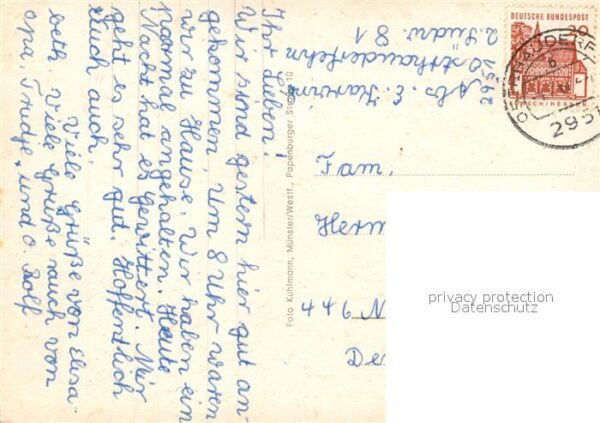 Ihr Lieben!
Wir sind gestern hier gut an-
gekommen. Um 8 Uhr waren
wir zu Hause. Wir haben ein
normal angehalten. Heute
Nacht hat es gewittert. Mir
geht es sehr gut. Hoffentlich
Euch auch.
Viele Grüße von Elisa-
beth. Viele Grüße auch von
Opa, Trudje, und O. Rolf
2951
Foto Kuhlmann, Münster/Westf., Papenburger Straße 10
DEUTSCHE BUNDESPOST
20
LORSCH/HESSEN
2951
Fam.
Herm
446 N
De
privacy protection
Datenschutz